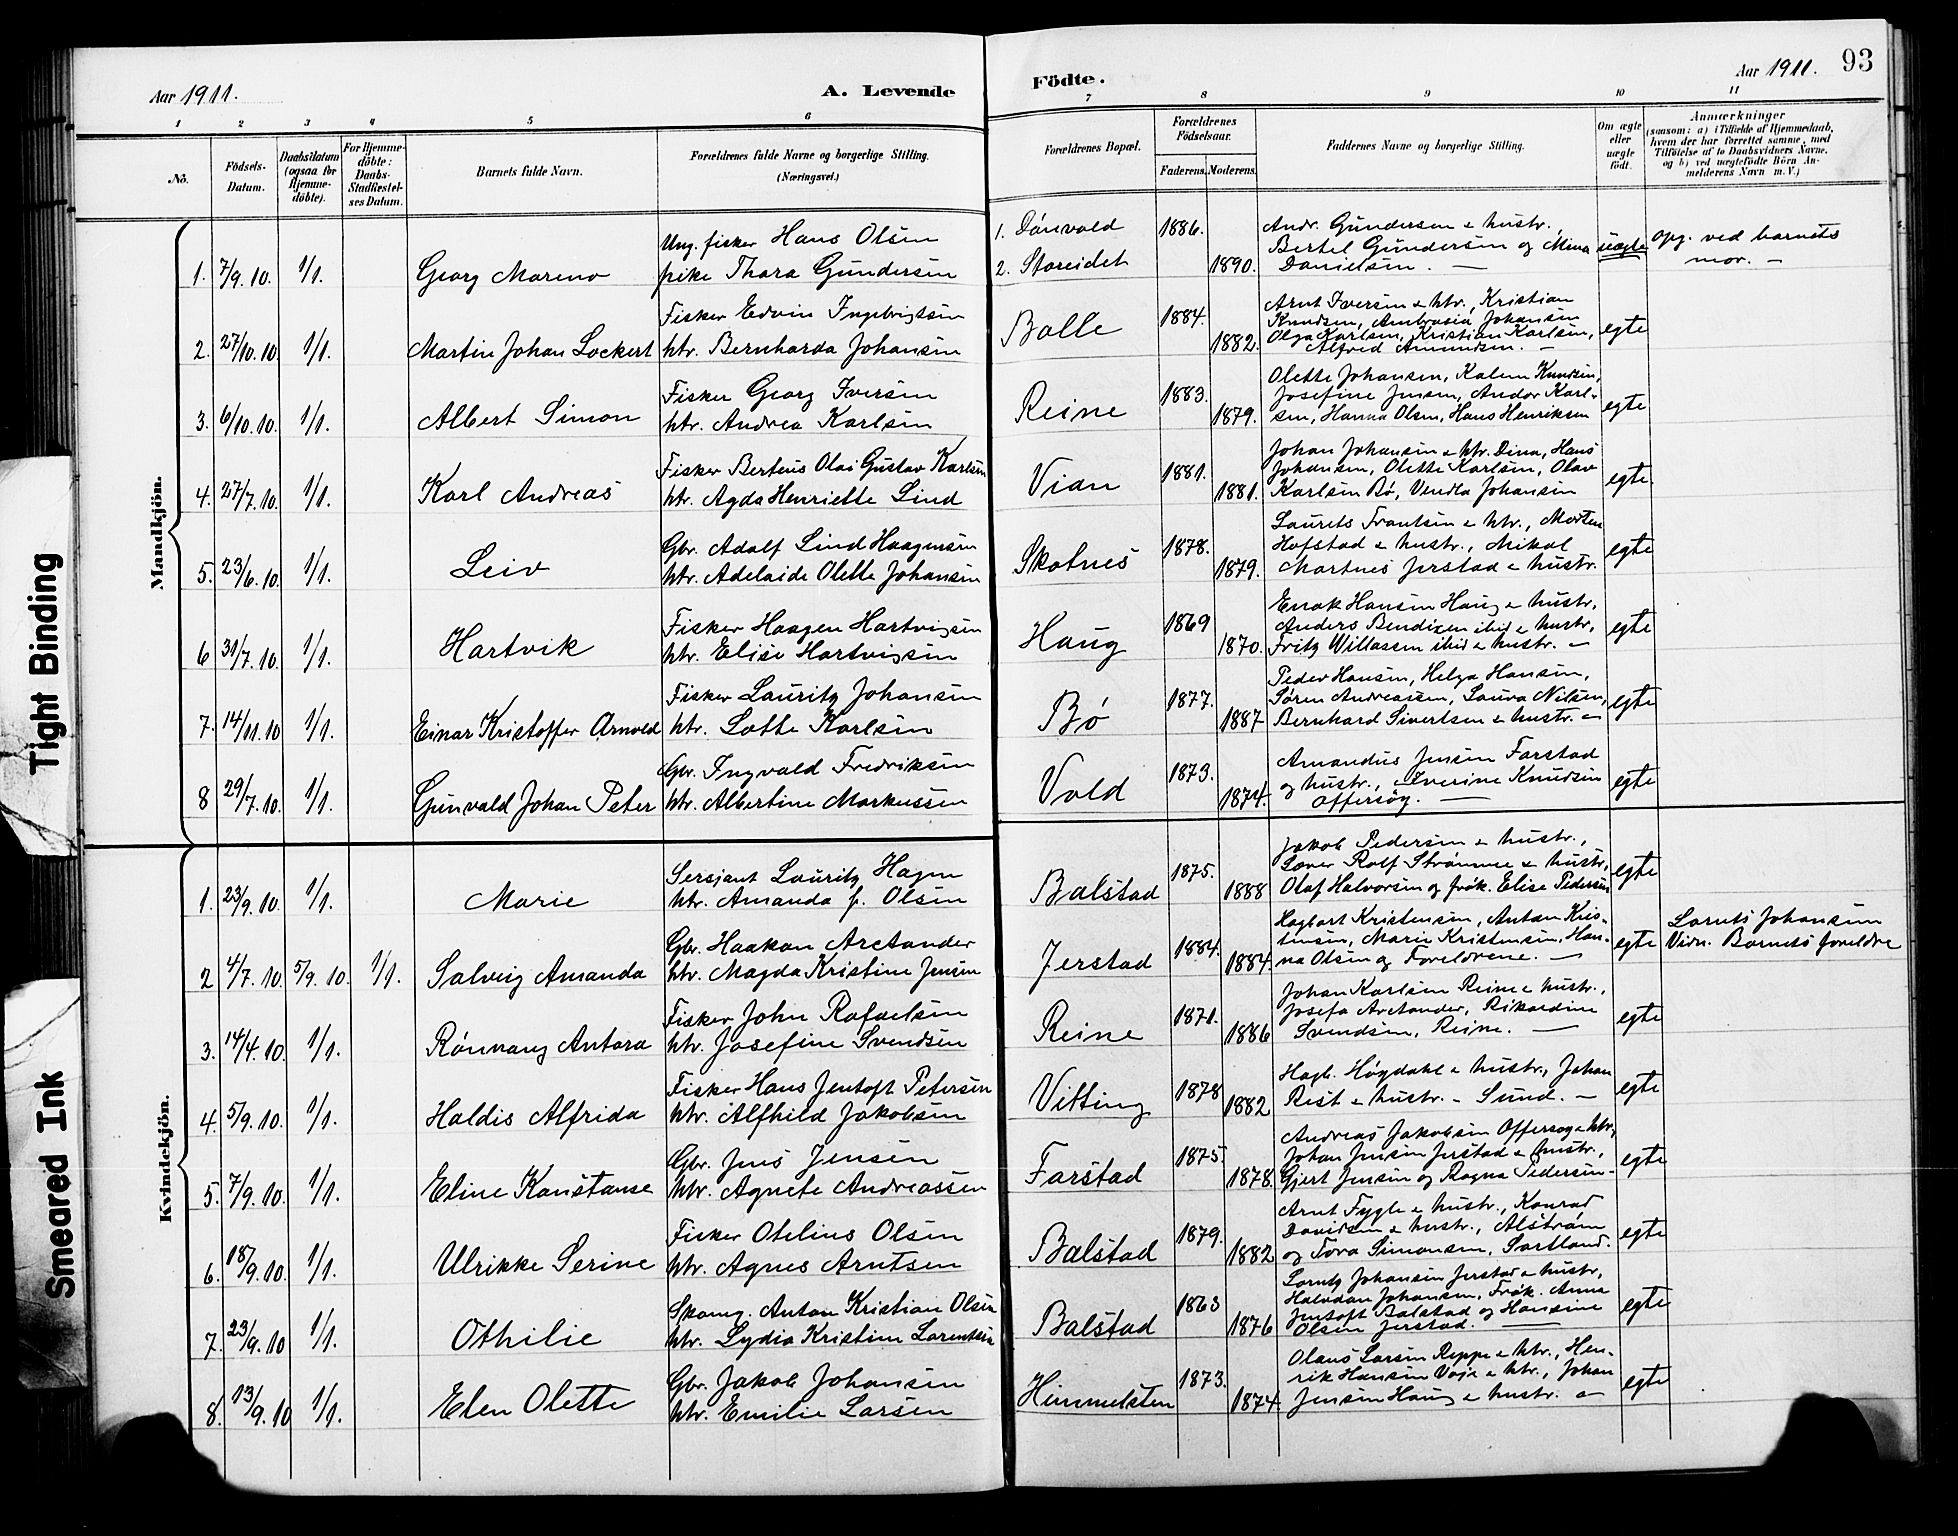 Aar 1911.
A. Levende
Födte.
Aar 1911.
93
1 2 3 4 5 6 7 8 9 10 11
No.
Födsels-
Datum.
Daabsdatum
(ogsaa for
Hjemme-
döbte).
For Hjemme-
döbte:
Daabs-
Stadfæstel-
ses Datum.
Barnets fulde Navn.
Forældrenes fulde Navne og borgerlige Stilling.
(Næringsvei.)
Forældrenes Bopæl.
Forældrenes
Födselsaar.
Faderens. Moderens.
Faddernes Navne og borgerlige Stilling.
Om ægte
eller
uægte
födt.
Anmærkninger
(saasom: a) i Tilfælde af Hjemmedaab,
hvem der har forrettet samme, med
Tilföielse af to Daabsvidners Navne.
og b) ved uægtefödte Börn An-
melderens Navn m.V.)
Mandkjön.
1. 7/9.10. 1/1. Georg Moreno
Ung. fisker Hans Olsen
pike Thora Gundersen
1. Dønvold
2. Storeidet
1886.
1890.
Andr. Gundersen & hustr.,
Bertel Gundersen og Mina
Danielsen. —
uægte
opg. ved barnets
mor. —
2. 27/10.10. 1/1. Martin Johan Lockert
Fisker Edvin Ingebrigtsen
htr. Bernharda Johansen
Balle
1884.
1882.
Arnt Iversen & htr., Kristian
Knudsen, Ambrosia Johansen
Olga Karlsen, Kristian Karlsen,
Alfred Amundsen. —
egte
3. 6/10.10. 1/1. Albert Simon
Fisker Georg Iversen
htr. Andrea Karlsen
Reine
1883.
1879.
Olette Johansen, Kalem Knudsen,
Josefine Jensen, Andor Karl-
sen, Hanna Olsen, Hans Henriksen
egte
4. 27/7.10. 1/1. Karl Andreas
Fisker Berteus Olai Gustav Karlsen
htr. Agda Henriette Lind
Vian
1881.
1881.
Johan Johansen & htr. Dina, Hans
Johansen, Olette Karlsen, Olav
Karlsen Bø, Vendla Johansen
egte.
5. 23/6.10. 1/1. Leiv
Gbr. Adolf Lind Haagensen
htr. Adelaide Olette Johansen
Skotnes
1878.
1879.
Laurits Frantsen & htr., Morten
Hofstad & hustr., Mikal
Martnes Jerstad & hustr.
egte
6 31/7.10. 1/1. Hartvik
Fisker Haagen Hartvigsen
htr. Elise Hartvigsen
Haug
1869
1870.
Enok Hansen Haug & hustr,
Anders Bendixen ibid & hustr,
Fritz Willassen ibid & hustr. —
egte
7. 14/11.10 1/1. Einar Kristoffer Arnold
Fisker Lauritz Johansen
htr. Lotte Karlsen
Bø
1877.
1887
Peder Hansen, Helga Hansen,
Søren Andreassen, Laura Nilsen,
Bernhard Sivertsen & hustr. —
egte
8 29/7.10. 1/1. Gunvald Johan Peter
Gbr. Ingvald Fredriksen
htr. Albertine Markussen
Vold
1873.
1874.
Amandus Jensen Farstad
og hustr., Iverine Knudsen
Offersøy. —
egte
Kvindekjön.
1. 23/9.10. 1/1. Marie
Sersjant Lauritz Hagen
htr. Amanda f. Olsen
Balstad
1875.
1888
Jakob Pedersen & hustr.,
Lover Rolf Strømme & hustr,
Olaf Halvorsen og frøk. Elise Pedersen
egte
2 4/7.10. 5/9.10. 1/1. Solveig Amanda
Gbr. Haakon Arctander
htr. Magda Kristine Jensen
Jerstad
1884.
1884.
Hagbart Kristensen, Anton Kris-
tensen, Marie Kristensen, Han-
na Olsen og Foreldrene. —
egte
Lornts Johansen
Vidn. Barnets foreldre
3. 14/4.10. 1/1. Rønnaug Antora
Fisker John Rafaelsen
htr. Josefine Svendsen
Reine
1871.
1886
Johan Karlsen Reine & hustr.,
Josefa Arctander, Rikardine
Svendsen, Reine. —
egte
4. 5/9.10. 1/1. Haldis Alfrida
Fisker Hans Jentoft Petersen
htr. Alfhild Jakobsen
Vitting
1878
1882
Hagb. Høydahl & hustr., Johan
Rist & hustr. — Sund. —
egte
5. 7/9.10. 1/1. Eline Konstanse
Gbr. Jens Jensen
htr. Agnete Andreassen
Farstad
1875.
1878.
Andreas Jakobsen Offersøy & htr,
Johan Jensen Jerstad & hustr.,
Gjert Jensen og Ragna Pedersen-
egte
6. 18/9.10. 1/1. Ulrikke Serine
Fisker Otelius Olsen
htr. Agnes Arntsen
Balstad
1879.
1882
Arnt Fygle & hustr., Konrad
Davidsen & hustr., Alstrøm
og Tora Simonsen, Sortland.
egte
7. 23/9.10 1/1. Othilie
Skomg. Anton Kristian Olsen
htr. Lydia Kristine Lorentsen
Balstad
1863
1876
Lorntz Johansen Jerstad & hustr,
Halvdan Johansen, Frøk. Anna
Jentoft Balstad og Hansine
Olsen Jerstad. —
egte
8. 13/9.10 1/1. Elen Olette
Gbr. Jakob Johansen
htr. Emilie Larsen
Himmelsten
1873.
1874.
Olaus Larsen Reppe & htr., Hen-
rik Hansen Voje & htr., Johan
Jensen Haug & hustr. —
egte
Tight Binding
Smeared Ink